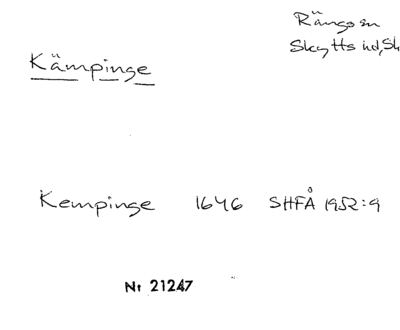 Rängs sn
Skytts hd, Sk
Kämpinge
Kempinge 1646 SHFÅ 1952:9
Nr 21247